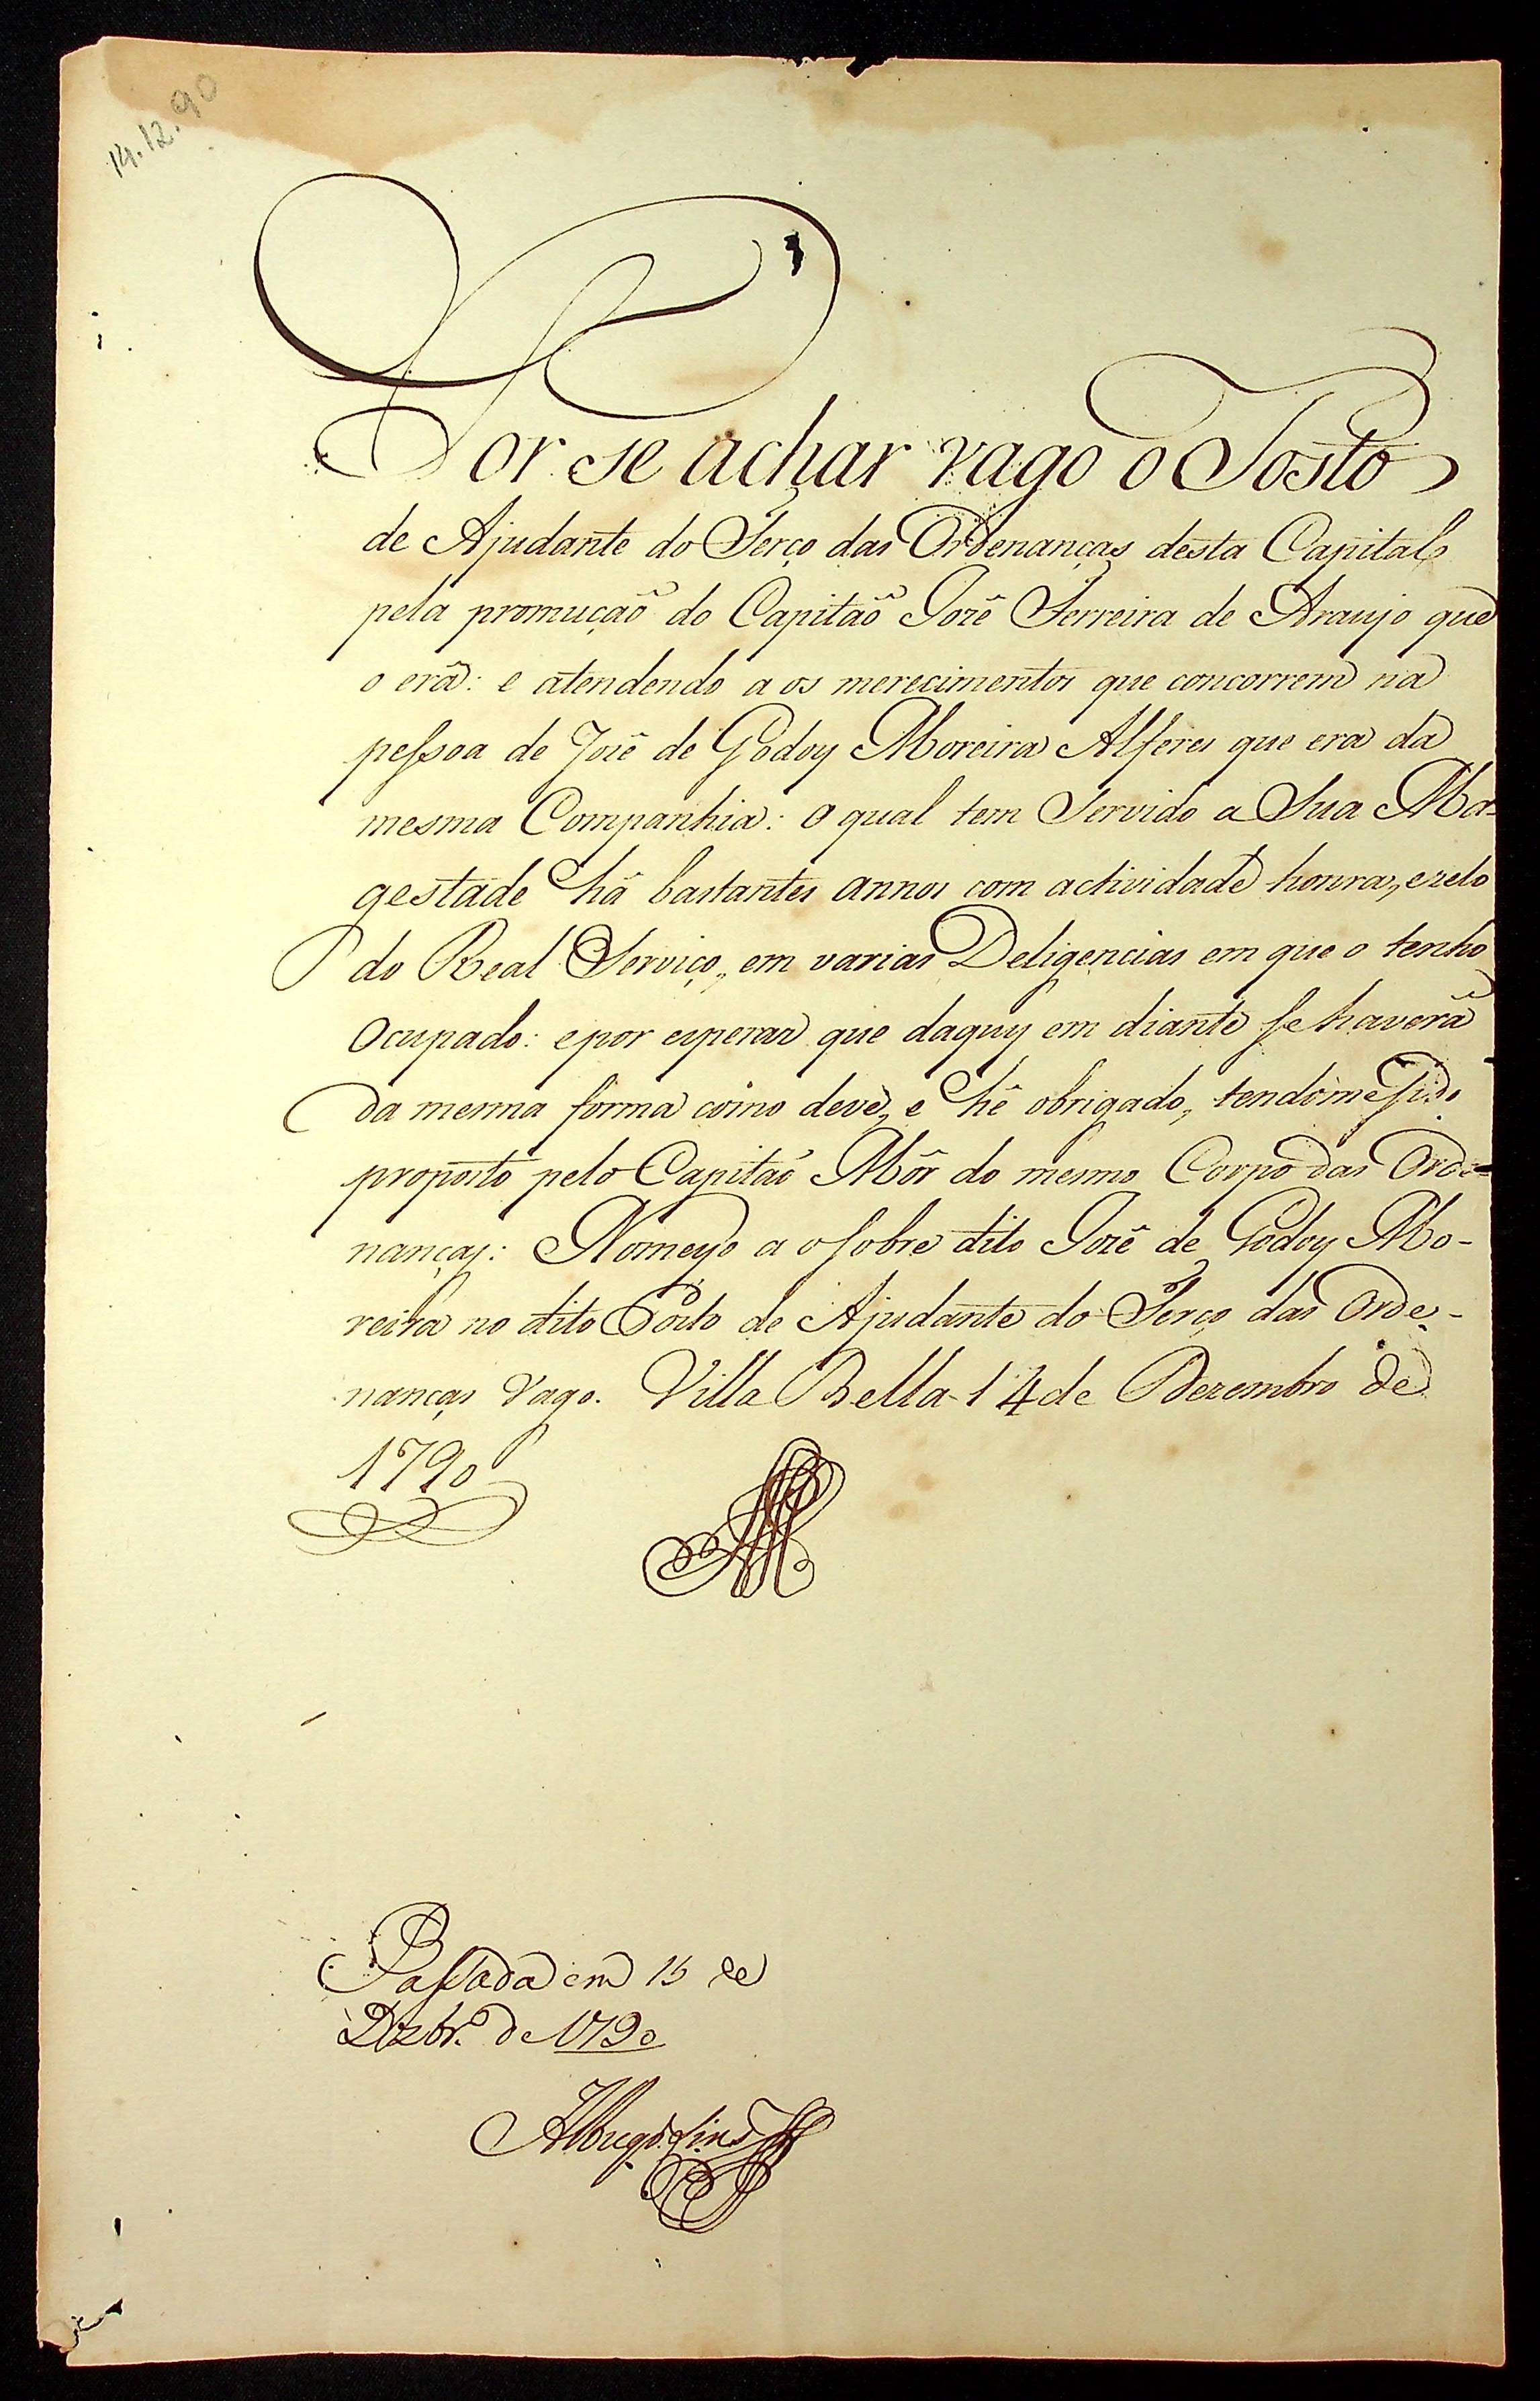 14.12.90
Por se achar vago o Posto
de Ajudante do Terço das Ordenanças desta Capital
pela promuçaõ do Capitaõ Jozê Ferreira de Araujo que
o erâ: e atendendo a os merecimentos que concorrem na
peſsoa de Jozê de Godoy Moreira Alferes que era da
mesma Companhia: o qual tem Servido a Sua Ma-
gestade hâ bastantes annos com actividade honra, ezelo
do Real Serviço, em varias Deligencias em que o tenho
ocupado: epor esperar que daquy em diante ſe haverâ
da mesma forma como deve, e hê obrigado, tendome ſido
proposto pelo Capitaõ Môr do mesmo Corpo das Orde-
nanças: Nomeyo a o ſobre dito Jozê de Godoy Mo-
reira no dito Posto de Ajudante do Terço das Orde-
nanças vago. Villa Bella 14 de Dezembro de
1790
Paſsada em 15 de
Dezbr.º de 1790